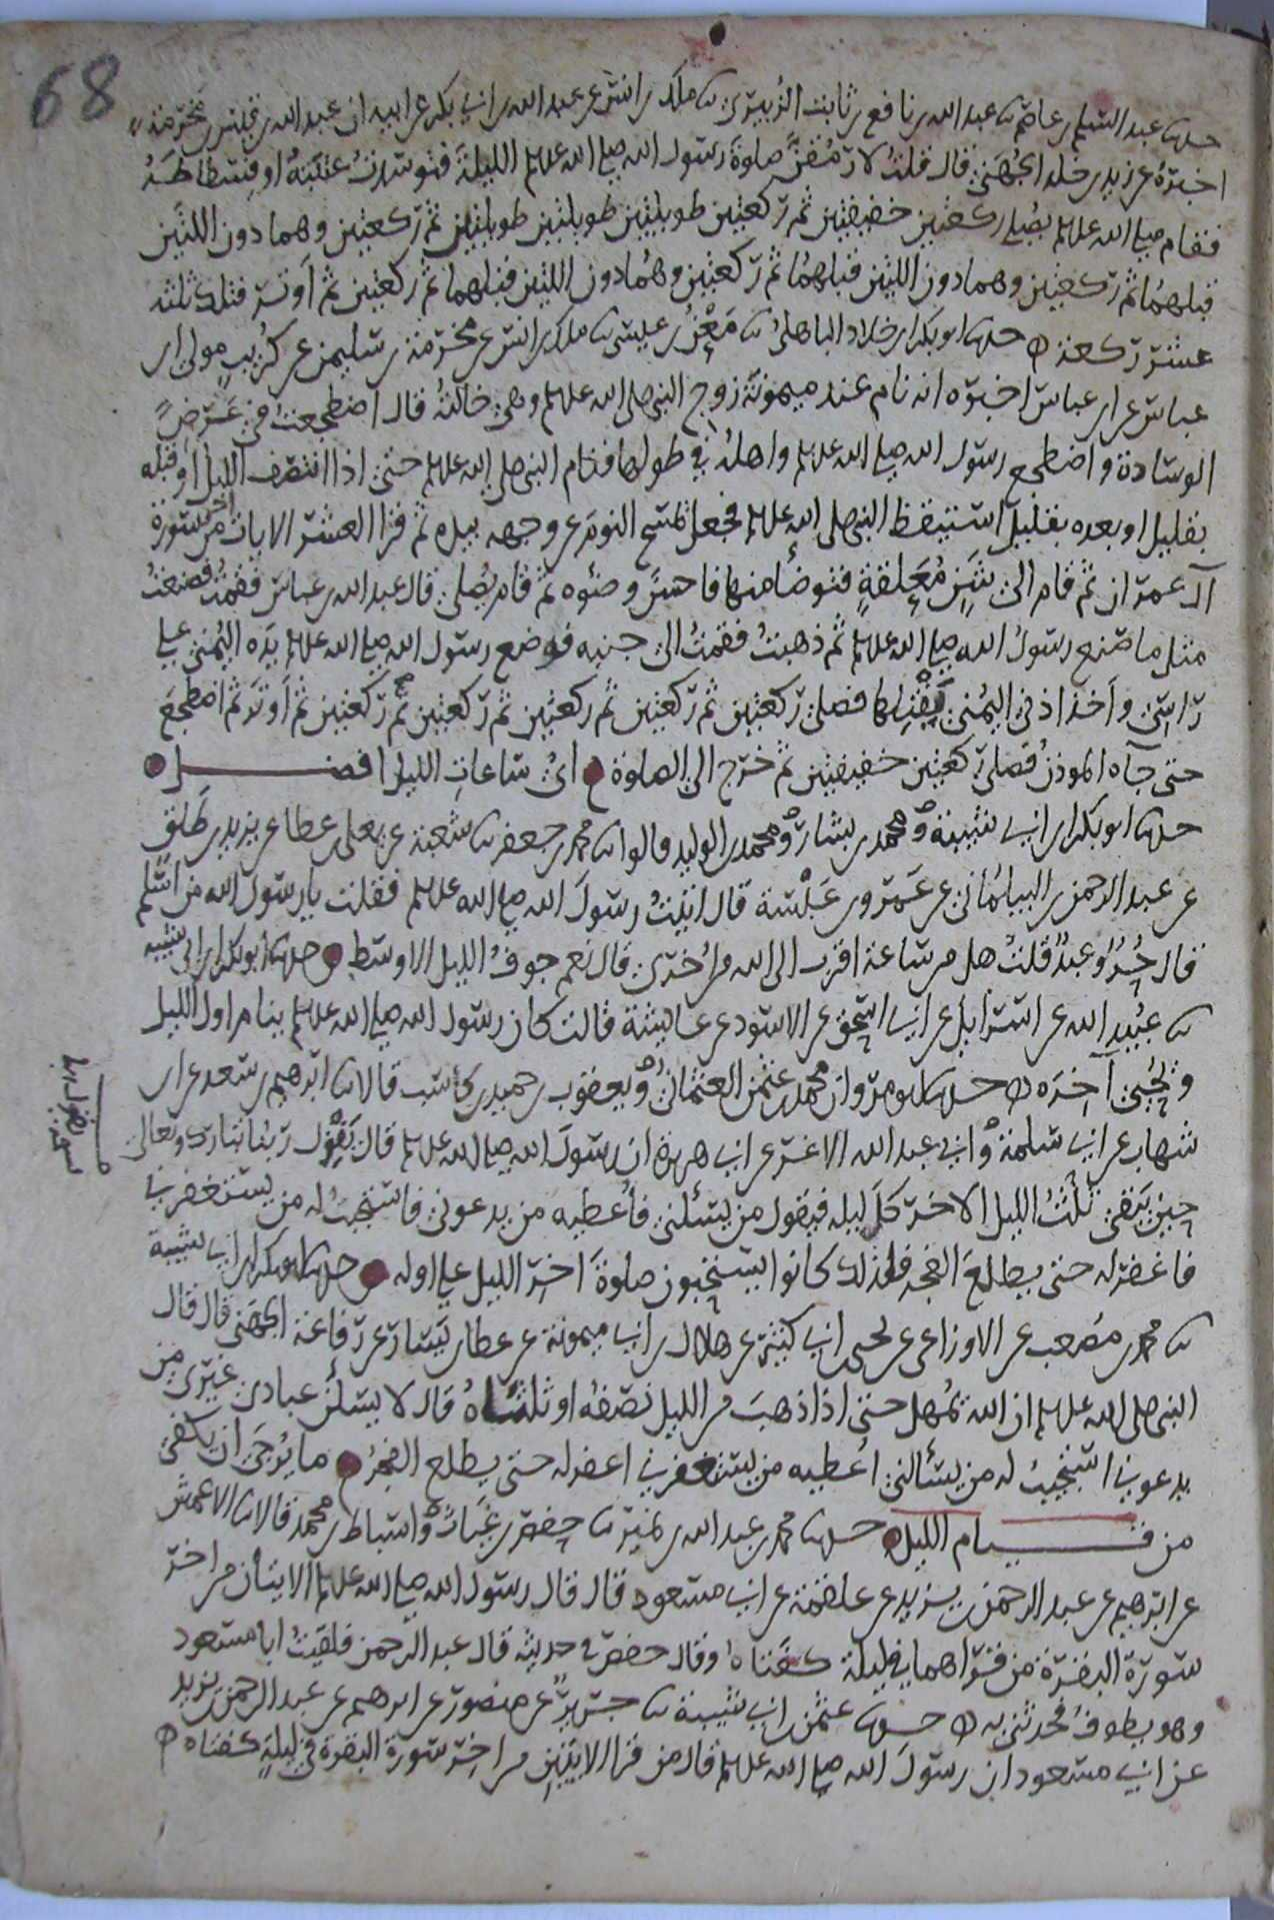 68
حدثنا عبد السلم بن عاصم ثنا عبد الله بن نافع بن ثابت الزبيري ثنا ملك بن انس عن عبد الله بن ابي بكر عن ابيه ان عبد الله بن قيس بن مخرمة
اخبره عن زيد بن خلد الجهني قال قلت لارمقن صلوة رسول الله صلى الله عليه وسلم الليلة فتوسدت عتبته او فسطاطه
فقام صلى الله عليه وسلم يصلي ركعتين خفيفتين ثم ركعتين طويلتين طويلتين طويلتين ثم ركعتين وهما دون اللتين
قبلهما ثم ركعتين وهما دون اللتين قبلهما ثم ركعتين وهما دون اللتين قبلهما ثم ركعتين ثم اوتر فتلك ثلث
عشر ركعة حدثنا ابو بكر بن خلاد الباهلي ثنا معن بن عيسى ثنا ملك بن انس عن مخرمة بن سليمن عن كريب مولى ابن
عباس عن ابن عباس اخبره انه نام عند ميمونة زوج النبي صلى الله عليه وسلم وهي خالته قال اضطجعت في عرض
الوسادة واضطجع رسول الله صلى الله عليه وسلم واهله في طولها فنام النبي صلى الله عليه وسلم حتى اذا انتصف الليل او قبله
بقليل او بعده بقليل استيقظ النبي صلى الله عليه وسلم فجعل يمسح النوم عن وجهه بيده ثم قرا العشر الايات من اخر سورة
آل عمران ثم قام الى شن معلقة فتوضأ منها فاحسن وضوه ثم قام يصلي قال عبد الله بن عباس فقمت فصنعت
مثل ما صنع رسول الله صلى الله عليه وسلم ثم ذهبت فقمت الى جنبه فوضع رسول الله صلى الله عليه وسلم يده اليمنى على
راسي واخذ اذني اليمنى يفتلها فصلى ركعتين ثم ركعتين ثم ركعتين ثم ركعتين ثم ركعتين ثم اوتر ثم اضطجع
حتى جآه الموذن فصلى ركعتين خفيفتين ثم خرج الى الصلوة اي ساعات الليل افضل
حدثنا ابو بكر بن ابي شيبة ومحمد بن بشار ومحمد بن الوليد قالوا ثنا محمد بن جعفر ثنا شعبة عن يعلى بن عطا عن يزيد بن طلق
عن عبد الرحمن بن البيلماني عن عمرو بن عبسة قال اتيت رسول الله صلى الله عليه وسلم فقلت يا رسول الله من اسلم
قال حر وعبد قلت هل من ساعة اقرب الى الله من اخرى قال نعم جوف الليل الاوسط حدثنا ابو بكر بن ابي شيبه
ثنا عبيد الله عن اسرايل عن ابي اسحق عن الاسود عن عايشة قالت كان رسول الله صلى الله عليه وسلم ينام اول الليل
ويحيي آخره حدثنا ابو مروان محمد بن عثمن العثماني ويعقوب بن حميد بن كاسب قالا ثنا ابرهيم بن سعد عن ابن
شهاب عن ابي سلمة وابي عبد الله الاغر عن ابي هريرة ان رسول الله صلى الله عليه وسلم قال يقول ربنا تبارك وتعالى
حين يبقى ثلث الليل الاخر كل ليله فيقول من يسئلني فأعطيه من يدعوني فاستجيب له من يستغفرني
فاغفر له حتى يطلع الفجر فلذلك كانوا يستحبون صلوة اخر الليل على اوله حدثنا ابو بكر بن ابي شيبة
ثنا محمد بن مصعب عن الاوزاعي عن يحيى بن ابي كثير عن هلال بن ابي ميمونة عن عطا بن يسار عن رفاعة الجهني قال قال
النبي صلى الله عليه وسلم ان الله يمهل حتى اذا ذهب من الليل نصفه او ثلثاه قال لا يسئلن عبادي غيري من
يدعوني استجيب له من يسألني اعطيه من يستغفرني اغفر له حتى يطلع الفجر ما يرجى ان يكفي
من قيام الليل حدثنا محمد بن عبد الله بن نمير ثنا حفص بن غياث واسباط بن محمد قالا ثنا الاعمش
عن ابرهيم عن عبد الرحمن بن يزيد عن علقمة عن ابي مسعود قال قال رسول الله صلى الله عليه وسلم الايتان من اخر
سورة البقرة من قراهما في ليلة كفتاه وقال حفص في حديثه قال عبد الرحمن فلقيت ابا مسعود
وهو يطوف فحدثني به حدثنا عثمن بن ابي شيبة ثنا جرير عن منصور عن ابرهيم عن عبد الرحمن بن يزيد
عن ابي مسعود ان رسول الله صلى الله عليه وسلم قال من قرا الايتين من اخر سورة البقرة في ليلة كفتاه